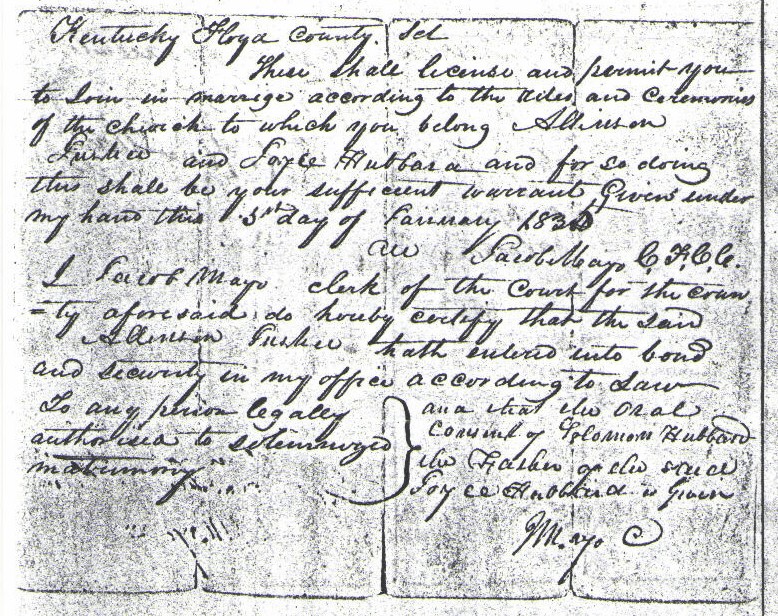 Kentucky Floyd County. Sct
These shall license and permit you
to Join in marriage according to the Rites and Ceremonies
of the church to which you belong Allinson
and Joyce Hubbard and for so doing
this shall be your sufficient warrant Given under
my hand this day of January 183
Jacob Mayo C.F.C.C.
I Jacob Mayo clerk of the Court for the coun
=ty aforesaid do hereby certify that the said
Allinson hath entered into bond
and security in my office according to Law
To any person legally
authorised to solemnized
matrimony
and that the Oral
Consent of Solomon Hubbard
the Father of the said
Joyce Hubbard is Given
Mayo C